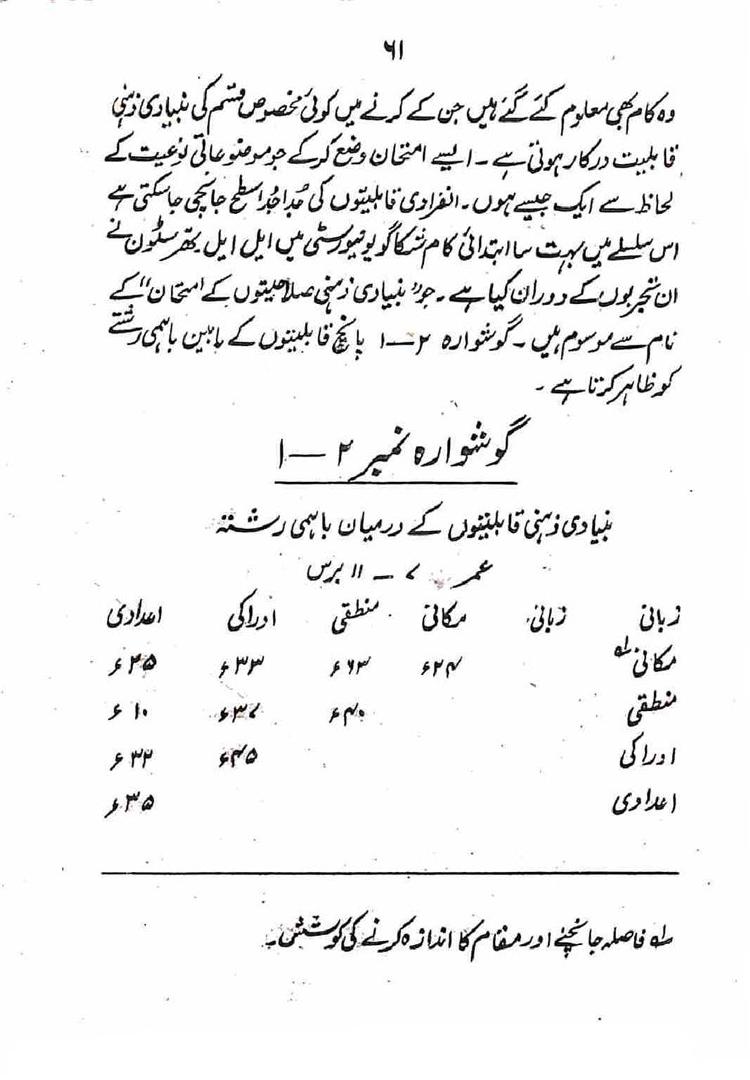 ۶۱
وہ کام بھی معلوم کئے گئے ہیں جن کے کرنے میں کوئی مخصوص قسم کی بنیادی ذہنی
قابلیت درکار ہوتی ہے ۔ ایسے امتحان وضع کر کے جو موضوعاتی نوعیت کے
لحاظ سے ایک جیسے ہوں ۔ انفرادی قابلیتوں کی جُدا جُدا سطح جانچی جاسکتی ہے
اس سلسلے میں بہت سا ابتدائی کام شکاگو یونیورسٹی میں ایل ایل تھرسٹون نے
ان تجربوں کے دوران کیا ہے ۔ جو "بنیادی ذہنی صلاحیتوں کے امتحان" کے
نام سے موسوم ہیں ۔ گوشوارہ ۲—۱ پانچ قابلیتوں کے مابین باہمی رشتے
کو ظاہر کرتا ہے ۔
گوشوارہ نمبر ۲—۱
بنیادی ذہنی قابلیتوں کے درمیان باہمی رشتہ
عمر ۷ — ۱۱ برس
زبانی زبانی مکانی منطقی ادراکی اعدادی
مکانی ؎۱ ۲۴ء ۶۳ء ۳۳ء ۲۵ء
منطقی ۴۰ء ۳۷ء ۱۰ء
ادراکی ۴۵ء ۳۲ء
اعدادی ۳۵ء
؎۱ فاصلہ جانچنے اور مقام کا اندازہ کرنے کی کوشش ۔